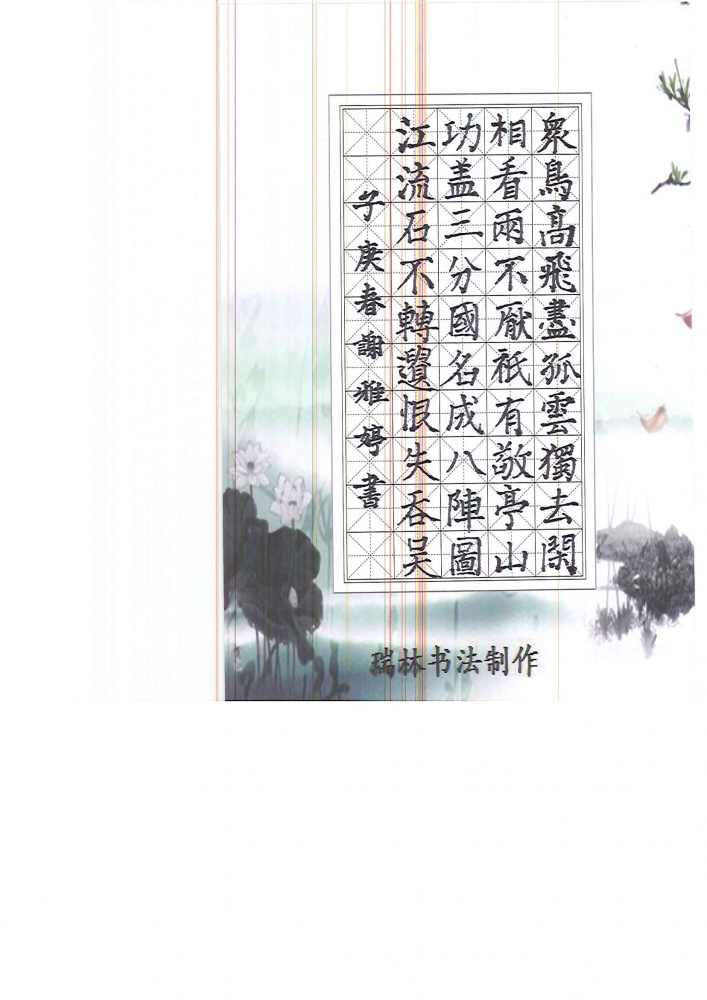 眾鳥高飛盡孤雲獨去閑
相看兩不厭祇有敬亭山
功盖三分國名成八陣圖
江流石不轉遺恨失吞吴
子庚春謝雅婷書
瑞林书法制作